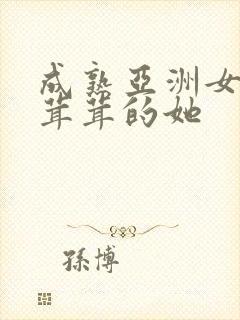 成熟亞洲女
茸茸的她
孫博